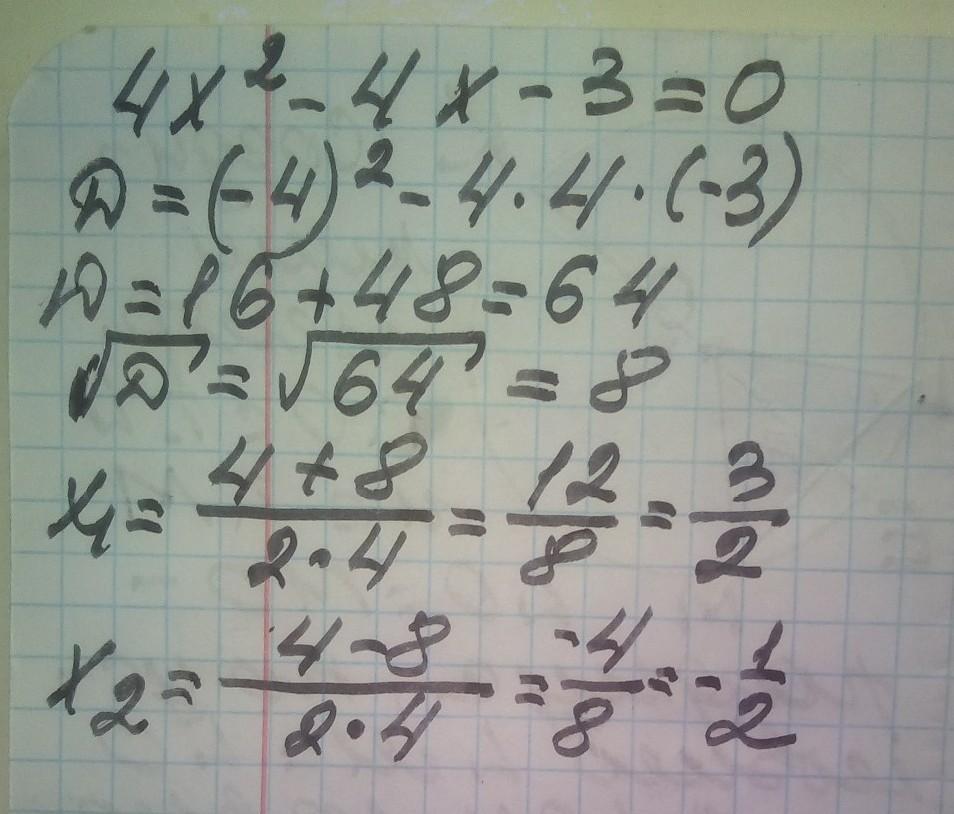 4x² - 4x - 3 = 0
D = (-4)² - 4 · 4 · (-3)
D = 16 + 48 = 64
√D = √64 = 8
x₁ = (4 + 8)/(2 · 4) = 12/8 = 3/2
x₂ = (4 - 8)/(2 · 4) = -4/8 = -1/2